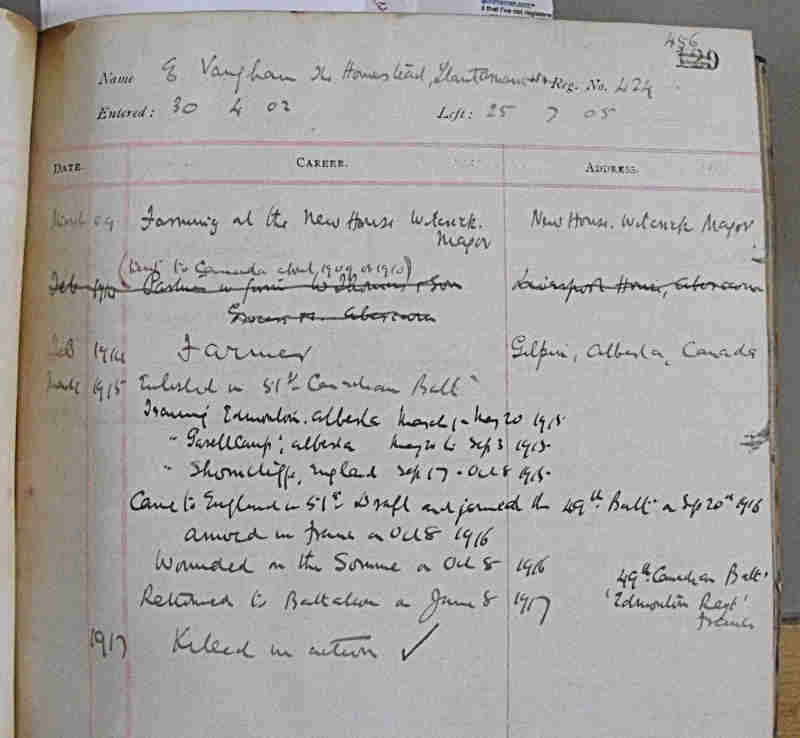 456
129
Name E Vaughan The Homestead, Reg. No. 424
Entered: 30 4 02 Left: 25 7 05
DATE. CAREER. ADDRESS.
March 09 Farming at the New House Wilcrick. New House. Wilcrick Magor
Magor
(Went to Canada about 1909 or 1910)
Feb 1910 Partner in firm W Thomas & Son House, Abercarn
Abercarn
Feb 1914 Farmer Gilpin, Alberta, Canada
March 1915 Enlisted in 51st Canadian Batt
Training Edmonton. Alberta March 1 - May 20 1915
" Camp", Alberta May 20 to Sep 3 1915
" Shorncliffe, England Sep 17 - Oct 8 1915
Came to England in 51st Draft and joined the 49th Batt on Sep 20th 1916
arrived in France on Oct 8 1916
Wounded on the Somme on Oct 8 1916 49th Canadian Batt'
Returned to Battalion on June 8 1917 'Edmonton Regt'
France
1917 Killed in action ✓